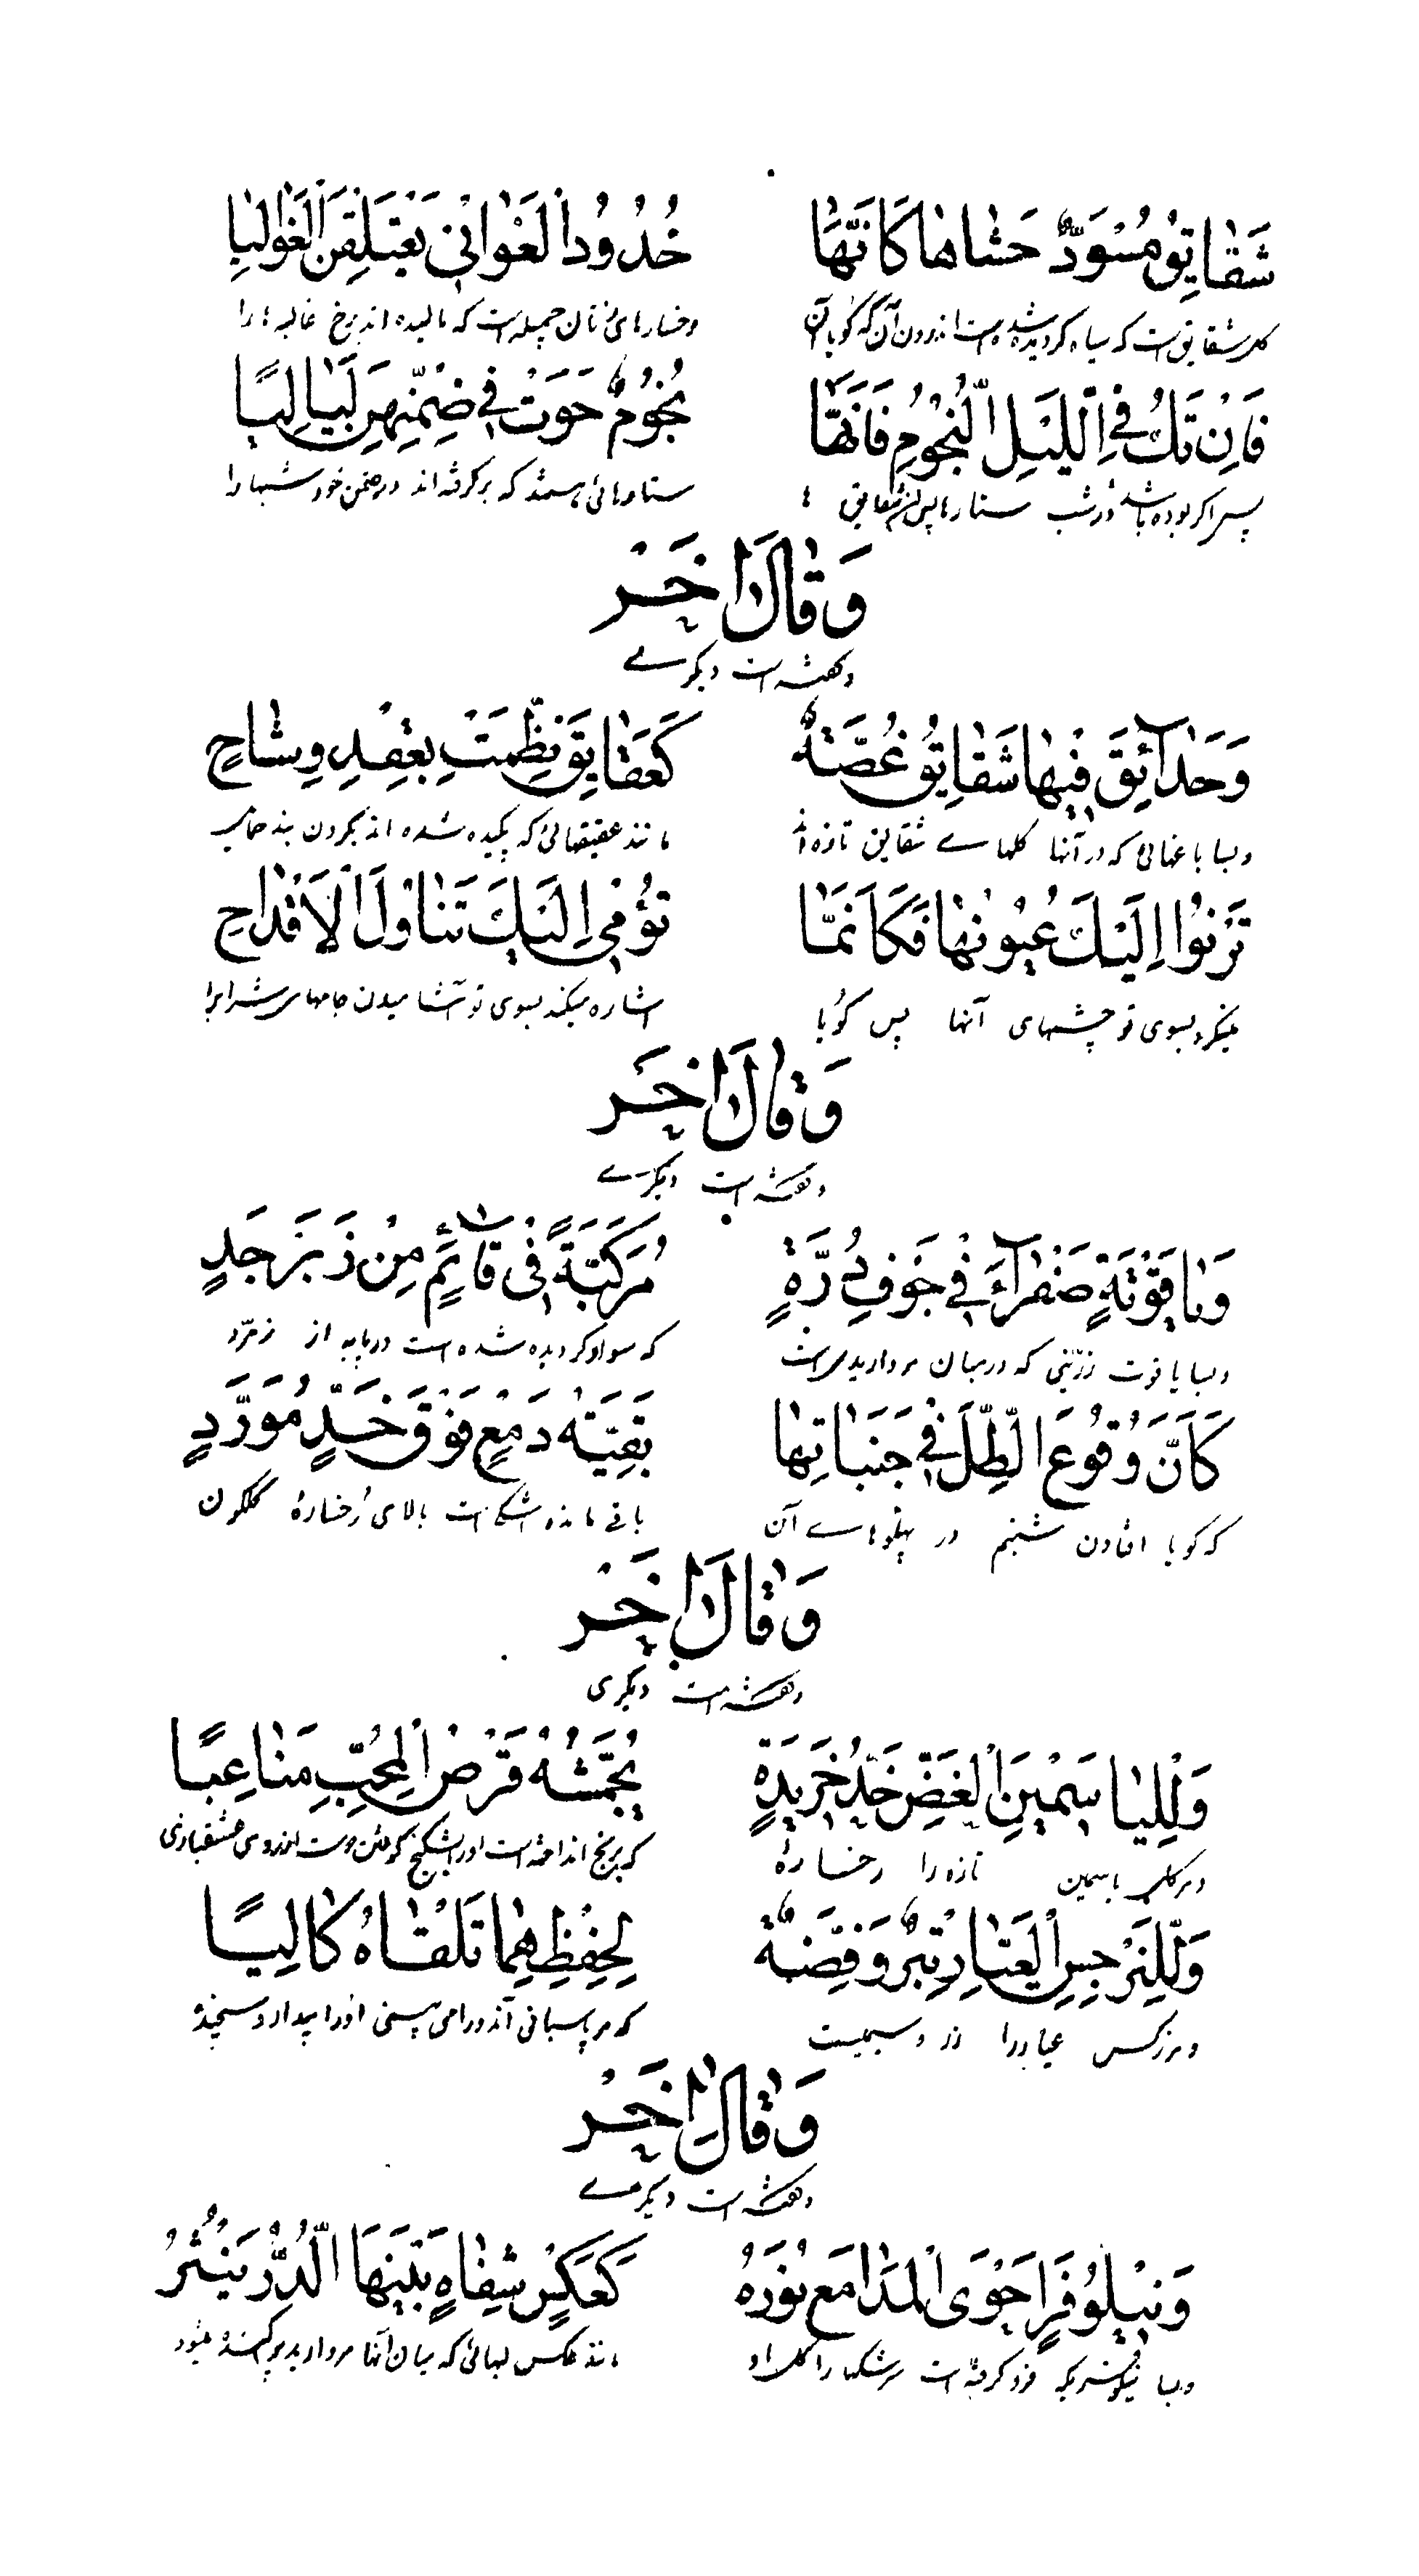 شَقٰايِقُ مُسْوَدٌّ حَشٰاهٰا كَاَنَّهٰا خُدُودُ الْغَوٰانِي يَعْتَلِقْنَ الْغَوٰالِيٰا
كل شقايق است كه سياه كرديده شده است اندرون آن كه كويا آن رخسارهاى زنان جميله است كه ماليده اند برخ غاليه ها را
فَاِنْ تَكُ فِي اللَّيْلِ النُّجُومُ فَاِنَّهٰا نُجُومٌ حَوَتْ فِي ضِمْنِهِنَّ لَيٰالِيًا
پس اكر بوده باشد در شب ستارها پس شقايق ها ستارهائى هستند كه بر كرفته اند در ضمن خود شبها را
وَقٰالَ اٰخَرُ
وكفته است ديكرے
وَحَدٰآئِقَ فِيهٰا شَقٰايِقُ غُصَّةٌ كَعَقٰايِقَ نُظِّمَتْ بِعِقْدِ وِشٰاحِ
وبسا باغهائى كه در آنها كلهاے شقايق تازه اند مانند عقيقهائى كه كشيده شده اند بكردن بند حمايل
تَرْنُوا اِلَيْكَ عُيُونُهٰا فَكَاَنَّمٰا تُؤْمِي اِلَيْكَ تَنٰاوُلَ الْاَقْدٰاحِ
مينكرد بسوى تو چشمهاى آنها پس كويا اشاره ميكند بسوى تو آشاميدن جامهاے شرابرا
وَقٰالَ اٰخَرُ
وكفته است ديكرے
وَيٰاقُوتَةٍ صَفْرٰآءَ فِي جَوْفِ دُرَّةٍ مُرَكَّبَةً فِي قٰآئِمٍ مِنْ زَبَرْجَدٍ
وبسا ياقوت زرّينى كه در ميان مرواريد است كه سوار كرديده شده است در پايه از زمرّد
كَاَنَّ وُقُوعَ الطَّلِّ فِي جَنَبٰاتِهٰا بَقِيَّةُ دَمْعٍ فَوْقَ خَدٍّ مُوَرَّدٍ
كه كويا افتادن شبنم در پهلوهاے آن باقى مانده اشك است بالاى رخسارۀ كلكون
وَقٰالَ اٰخَرُ
وكفته است ديكرى
وَلِلْيٰاسَمِينِ الْغَضِّ خَدُّ خَرِيدَةٍ يُجَمِّشُهُ قَرْضُ الْمُحِبِّ مَنٰاعِبًا
ومر كل ياسمين تازه را رخسارۀ
وَلِلنَّرْجِسِ الْعَيَّارِ تِبْرٌ وَفِضَّةٌ لِحِفْظِهِمٰا تَلْقٰاهُ كٰالِيًا
ومر نركس عيار را زر و سيميست كه مر پاسبانى آندو را مى بينى او را بيدار
وَقٰالَ اٰخَرُ
وكفته است ديكرے
وَنَيْلُوفَرٍ اَحْوَى الْمَدٰامِعِ نُوْرُهُ كَعَكْسِ شِفٰاهٍ بَيْنَهَا الدُّرُّ يُنْثَرُ
وبسا نيلوفريكه فرو كرفته است سرشكها را كل او مانند عكس لبهائى كه ميان آنها مرواريد پراكنده ميشود